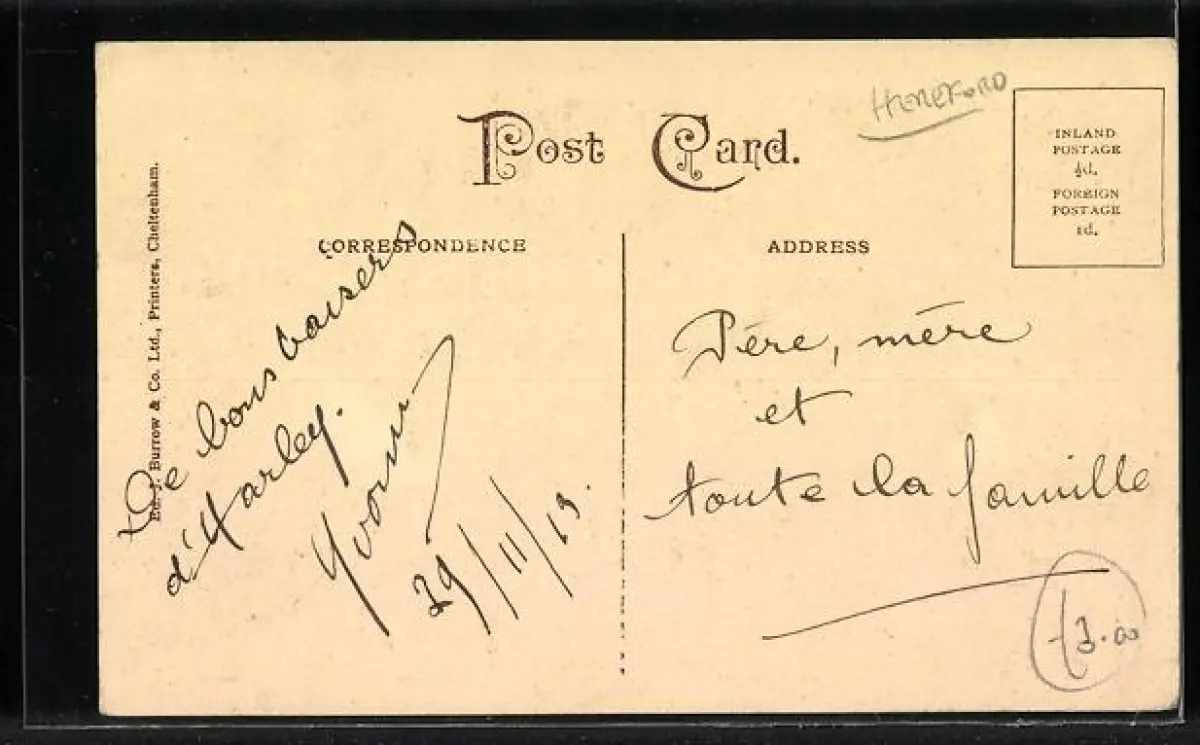 HEREFORD
Post Card.
INLAND
POSTAGE
½d.
FOREIGN
POSTAGE
1d.
CORRESPONDENCE
ADDRESS
Ed. J. Burrow & Co. Ltd., Printers, Cheltenham.
De bons baisers
d'Harley.
Yvonne
29/11/13.
Père, mère
et
toute la famille
£3.00